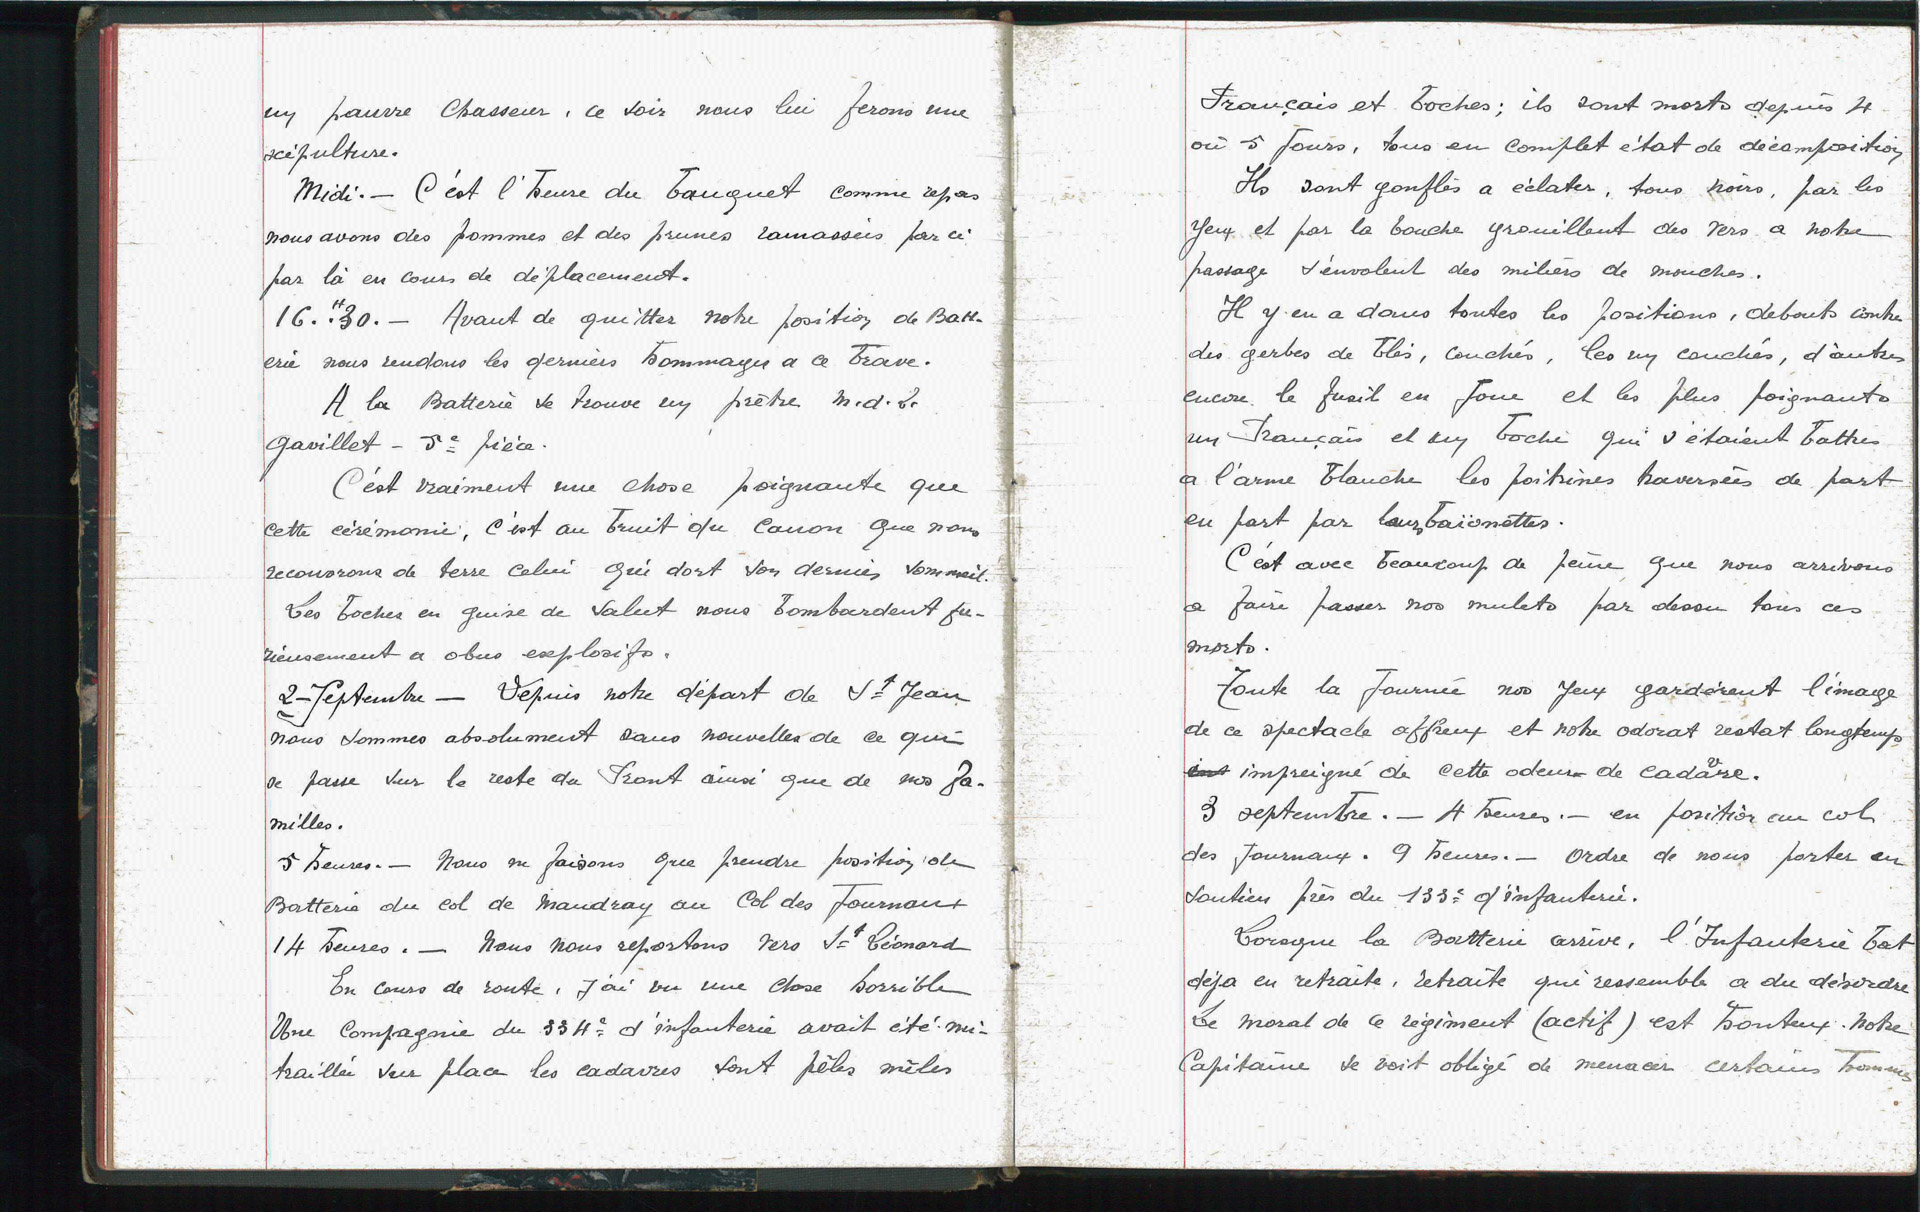 un pauvre Chasseur, ce soir nous lui ferons une
sépulture.
Midi. — C'ést l'heure du banquet comme repas
nous avons des pommes et des prunes ramasseés par ci
par là en cours de déplacement.
16.H30. — Avant de quitter notre position de Batt-
erie nous rendons les derniers hommages a ce brave.
A la Batterie se trouve un prêtre M.d.L.
Gavillet - 5e pièce.
C'ést vraiment une chose poignante que
cette cérémonie, c'ést au bruit du canon que nous
recouvrons de terre celui qui dort son dernier sommeil.
Les boches en guise de salut nous bombardent fu-
rieusement a obus explosifs.
2-Septembre — Depuis notre départ de St Jean
nous sommes absolument sans nouvelles de ce qui
se passe sur le reste du Front ainsi que de nos fa-
milles.
5 heures. — Nous ne faisons que prendre position de
Batterie du col de Mandray au Col des Journaux
14 heures. — Nous nous reportons vers St Léonard
En cours de route, j'ai vu une chose horrible
Une Compagnie du 334e d'infanterie avait été mi-
traillée sur place les cadavres sont pêles mêles
Français et boches; ils sont morts depuis 4
ou 5 jours, tous en complet état de décomposition
Ils sont gonflés a éclater, tous noirs, par les
yeux et par la bouche grouillent des vers a notre
passage s'énvolent des miliers de mouches.
Il y en a dans toutes les positions, debouts contre
des gerbes de blés, couchés, les un couchés, d'autres
encore le fusil en joue et les plus poignants
un Français et un boche qui s'étaient battus
a l'arme blanche les poitrines traversées de part
en part par leurs baïonettes.
C'ést avec beaucoup de peine que nous arrivons
a faire passer nos mulets par dessu tous ces
morts.
Toute la journée nos yeux gardérent l'image
de ce spectacle affreux et notre odorat restat longtemps
impreigné de cette odeur de cadavre.
3 septembre. — 4 heures. — en position au col
des Journaux. 9 heures. — Ordre de nous porter en
soutien près du 133e d'infanterie.
Lorsque la Batterie arrive, l'Infanterie bat
déja en retraite, retraite qui ressemble a du désordre
Le moral de ce régiment (actif) est honteux. Notre
Capitaine se voit obligé de menacer certains hommes